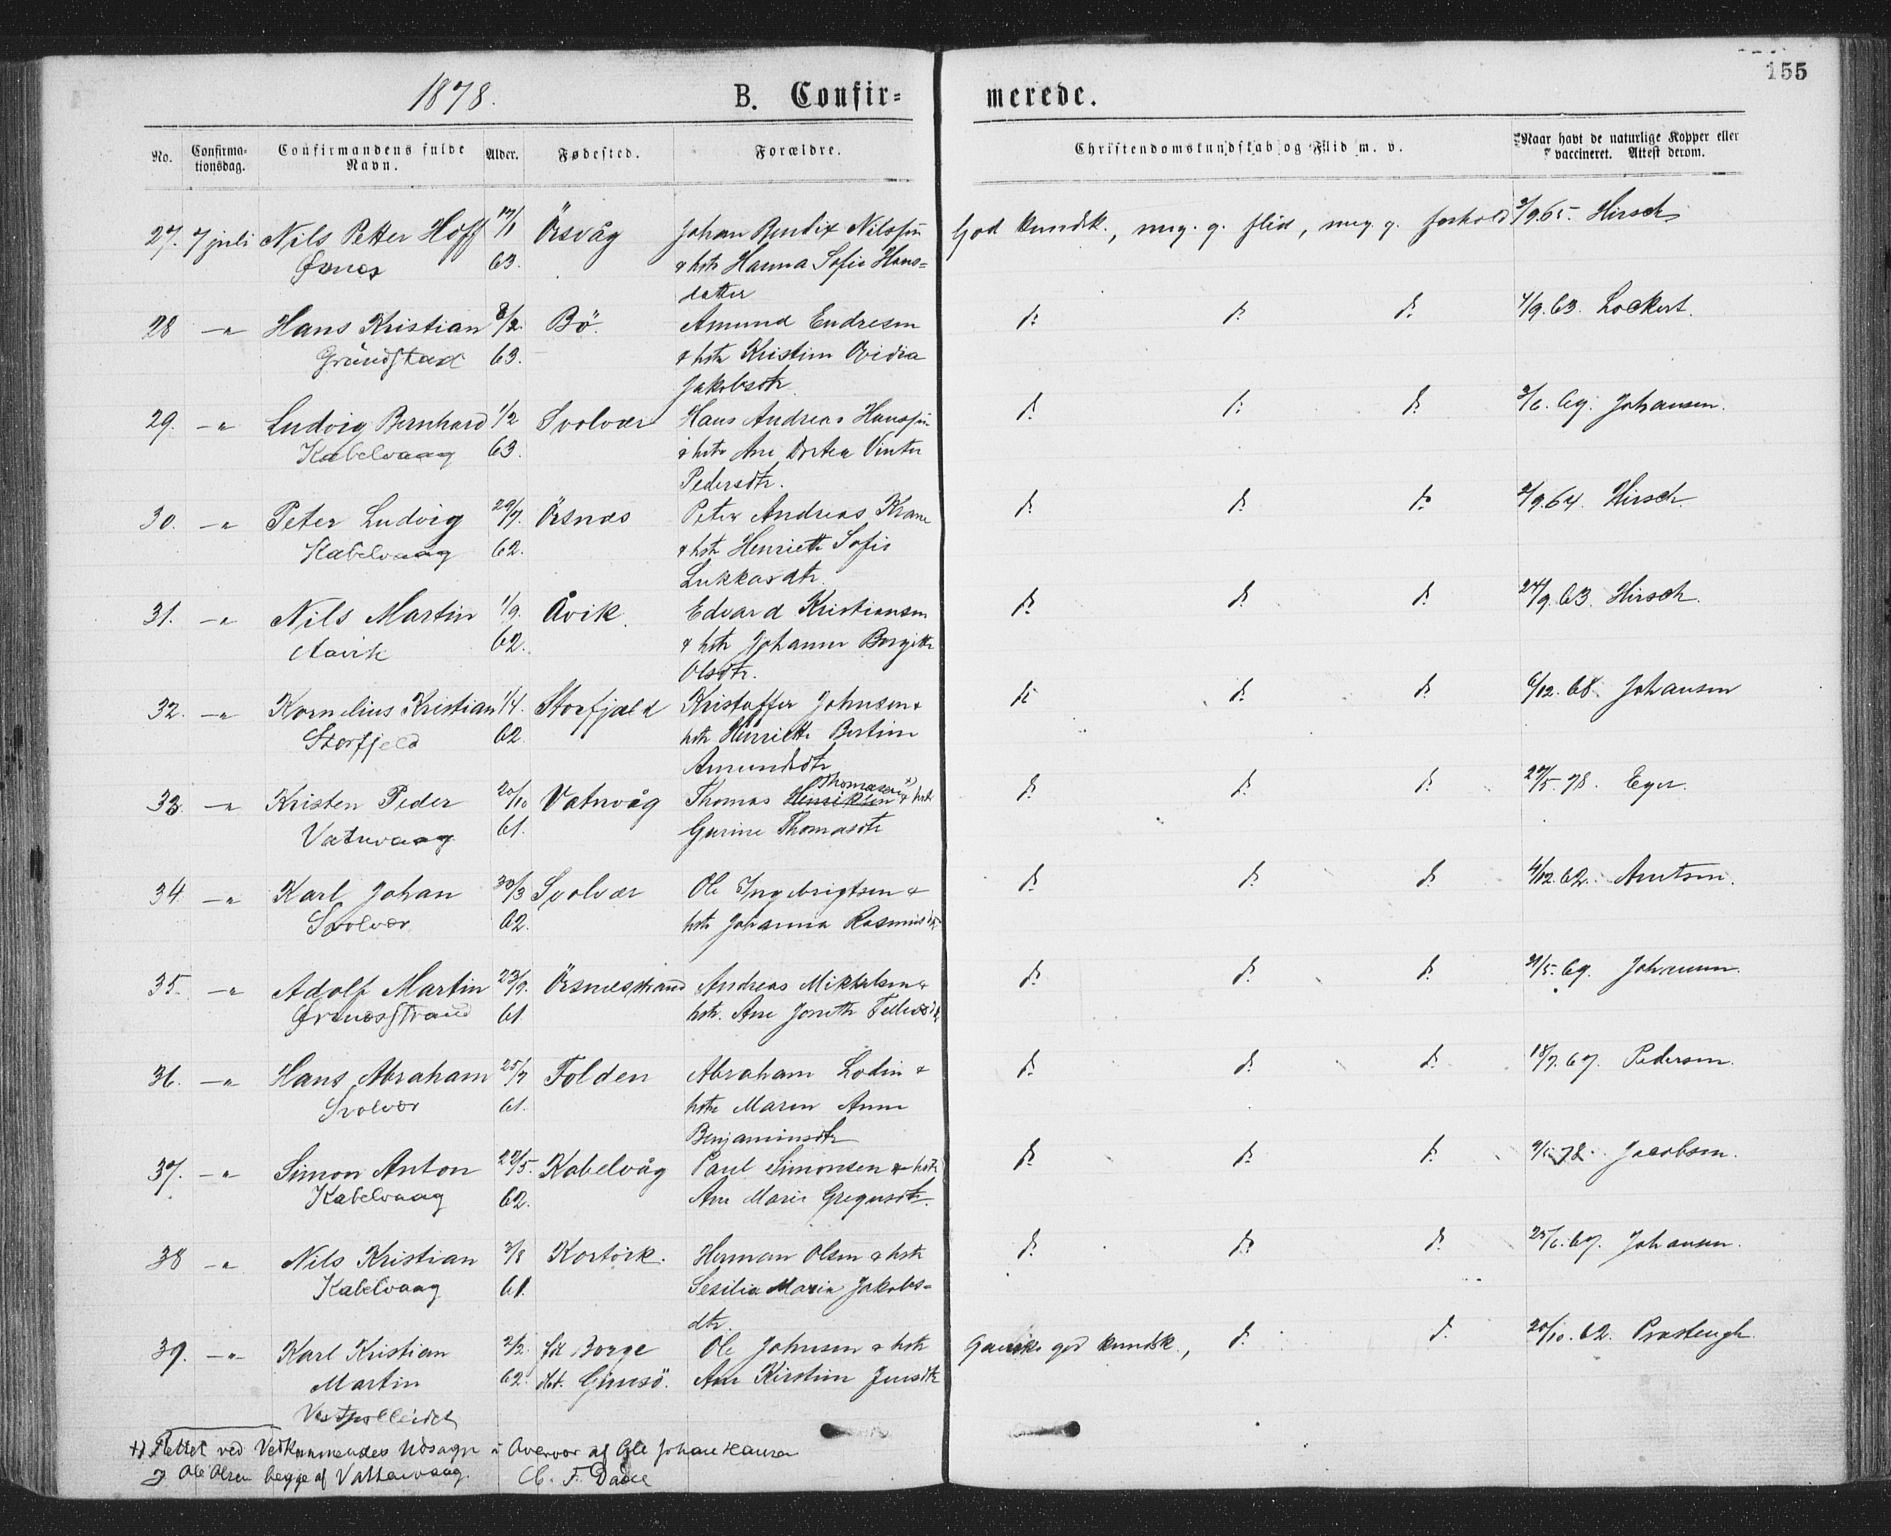 155
1878.
B. Confir= merede.
No. Confirma- tionsdag. Confirmandens fulde Navn. Alder. Fødested. Forældre. Christendomskundskab og Flid m. v. Naar havt de naturlige Kopper eller vaccineret. Attest derom.
27. 7 juli Nils Petter Hoff 17/1 Örsvåg Johan Bendix Nilssen God kundsk., meg. g. flid, meg. g. forhold 2/9.65. Hirsch
Ørsnes 63. & hstr Hanna Sofie Hans=
datter
28 -"- Hans Kristian 8/2. Bö. Amund Endresen d: d: d: 4/9.63. Lockert.
Grundstad 63. & hstr Kristine Ovidia
Jakobsdtr.
29. -"- Ludvig Bernhard 1/2 Svolvær Hans Andreas Hanssen d: d: d: 2/6. 69. Johansen.
Kabelvaag 63. & hstr Ane Dortea Vinter
Pedersdtr.
30. -"- Peter Ludvig 29/7. Örsnæs Peter Andreas Krane d: d: d: 2/9.64. Hirsch.
Kabelvaag 62. & hstr Henriette Sofie
Lukkasdtr.
31. -"- Nils Martin 1/9. Åvik. Edvard Kristiansen d: d: d: 24/9.63. Hirsch.
Aavik 62. & hstr Johanne Borgitte
Olsdtr.
32. -"- Kornelius Kristian 1/4. Storfjeld Kristoffer Johnsen & d: d: d: 6/12.68. Johansen
Storfjeld 62. hstr Henriette Bertine
Amundsdtr
Thomasen +)
33 -"- Kristen Peder 20/10 Vatnvåg Thomas Henriksen & hstr d: d: d: 27/5.78. Eger.
Vatnvaag 61. Gurine Thomasdtr
34 -"- Karl Johan 30/3 Svolvær Ole Ingebrigtsen & d: d: d: 4/12.62. Arntsen.
Svolvær 62. hstr Johanna Rasmusdtr
35. -"- Adolf Martin 23/9. Örsnæsstrand Andreas Mikkelsen & d: d: d: 21/5.69. Johansen.
Ørsnesstrand 61. hstr. Ane Jonette
36. -"- Hans Abraham 25/7 Folden Abraham Lodin & d: d: d: 18/7.67. Pedersen.
Svolvær 61. hstr Maren Anne
Benjaminsdtr
37. -"- Simon Anton 22/5. Kabelvåg Paul Simonsen & hstr d: d: d: Jacobsen.
Kabelvaag 62. Ane Marie Gregusdtr.
38 -"- Nils Kristian 2/8 Herman Olsen & hstr d: d: d: 25/6.67. Johansen.
Kabelvaag 61. Sesilia Maria Jakobs=
dtr.
39. -"- Karl Kristian 2/2. fd Borge Ole Johnsen & hstr Ganske god kundsk., d: d: 20/10.62.
Martin 62. Gimsö. Ane Kirstine Jensdtr
Vestpolleidet
+) Rettet ved Vedkommendes Udsagn i Overvær af Ole Johan Hansen
& Ole Olsen begge af Vatnevaag. Ch. F. Daae